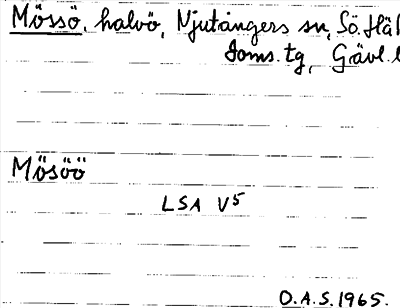 Mössö, halvö, Njutångers sn, Sö. Häl
Doms. tg, Grävl. l
Mösöö
LSA V5
O.A.S. 1965.